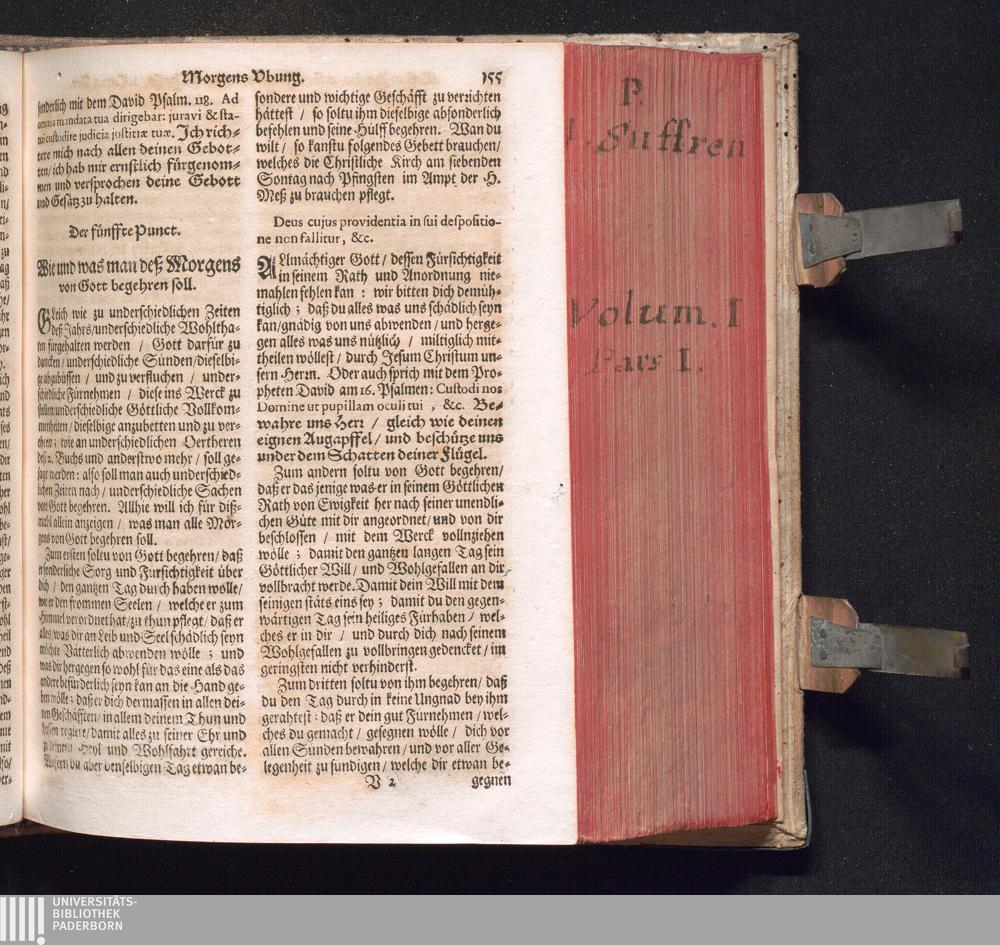 Morgens Vbung. 155
sonderlich mit dem David Psalm. 118. Ad
omnia mandata tua dirigebar: juravi & sta-
tui custodire judicia justitiæ tuæ. Ich rich-
tete mich nach allen deinen Gebot-
ten/ ich hab mir ernstlich fürgenom-
men und versprochen deine Gebott
und Gesätz zu halten.
Der fünffte Punct.
Wie und was man deß Morgens
von Gott begehren soll.
Gleich wie zu underschiedlichen Zeiten
deß Jahrs/ underschiedliche Wohltha-
ten fürgehalten werden / Gott darfür zu
dancken/ underschiedliche Sünden/ dieselbi-
ge abzubüssen / und zu verfluchen / under-
schiedliche Fürnehmen / diese ins Werck zu
stellen/ underschiedliche Göttliche Vollkom-
menheiten / dieselbige anzubetten und zu ver-
ehren; wie an underschiedlichen Oertheren
deß 2. Buchs und anderstwo mehr / soll ge-
sagt werden: also soll man auch underschied-
lichen Zeiten nach / underschiedliche Sachen
von Gott begehren. Allhie will ich für diß-
mahl allein anzeigen / was man alle Mor-
gens von Gott begehren soll.
Zum ersten soltu von Gott begehren/ daß
er sonderliche Sorg und Fürsichtigkeit über
dich / den gantzen Tag durch haben wolle/
wie er den frommen Seelen / welche er zum
Himmel verordnet hat/ zu thun pflegt/ daß er
alles/ was dir an Leib und Seel schädlich seyn
möchte Vätterlich abwenden wölle ; und
was dir hergegen so wohl für das eine als das
andere befürderlich seyn kan an die Hand ge-
ben wölle; daß er dich dermassen in allen dei-
nen Geschäfften/ in allem deinem Thun und
Lassen regiere/ damit alles zu seiner Ehr und
zu deinem Heyl und Wohlfahrt gereiche.
Wofern du aber denselbigen Tag etwan be-
sondere und wichtige Geschäfft zu verzichten
hättest / so soltu ihm dieselbige absonderlich
befehlen und seine Hülff begehren. Wan du
wilt / so kanstu folgendes Gebett brauchen/
welches die Christliche Kirch am siebenden
Sontag nach Pfingsten im Ampt der H.
Meß zu brauchen pflegt.
Deus cujus providentia in sui despositio-
ne non fallitur, &c.
Allmächtiger Gott / dessen Fürsichtigkeit
in seinem Rath und Anordnung nie-
mahlen fehlen kan : wir bitten dich demüh-
tiglich ; daß du alles was uns schädlich seyn
kan/ gnädig von uns abwenden / und herge-
gen alles was uns nützlich / miltiglich mit-
theilen wöllest / durch Jesum Christum un-
sern Herrn. Oder auch sprich mit dem Pro-
pheten David am 16. Psalmen: Custodi nos
Domine ut pupillam oculi tui , &c. Be-
wahre uns Herr / gleich wie deinen
eignen Augapffel / und beschütze uns
under dem Schatten deiner Flügel.
Zum andern soltu von Gott begehren/
daß er das jenige was er in seinem Göttlichen
Rath von Ewigkeit her nach seiner unendli-
chen Güte mit dir angeordnet/ und von dir
beschlossen / mit dem Werck vollnziehen
wölle ; damit den gantzen langen Tag sein
Göttlicher Will / und Wohlgefallen an dir
vollbracht werde. Damit dein Will mit dem
seinigen stäts eins sey ; damit du den gegen-
wärtigen Tag sein heiliges Fürhaben / wel-
ches er in dir / und durch dich nach seinem
Wohlgefallen zu vollbringen gedencket / im
geringsten nicht verhinderst.
Zum dritten soltu von ihm begehren/ daß
du den Tag durch in keine Ungnad bey ihm
gerahtest : daß er dein gut Furnehmen / wel-
ches du gemacht / gesegnen wölle / dich vor
allen Sünden bewahren / und vor aller Ge-
legenheit zu sundigen / welche dir etwan be-
V 2 gegnen
P.
Suffren
Volum. I
Pars I.
UNIVERSITÄTS-
BIBLIOTHEK
PADERBORN